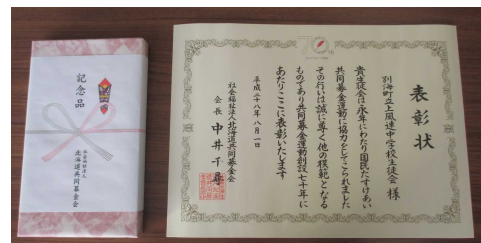 記念品
社会福祉法人
北海道共同募金会
70th
表彰状
別海町立上風連中学校生徒会 様
貴生徒会は永年にわたり国民たすけあい
共同募金運動に協力をしてこられました
その行いは誠に尊く他の模範となる
ものであり共同募金運動創設七十年に
あたりここに表彰いたします
平成二十八年八月一日
社会福祉法人北海道共同募金会
会長 中井千尋